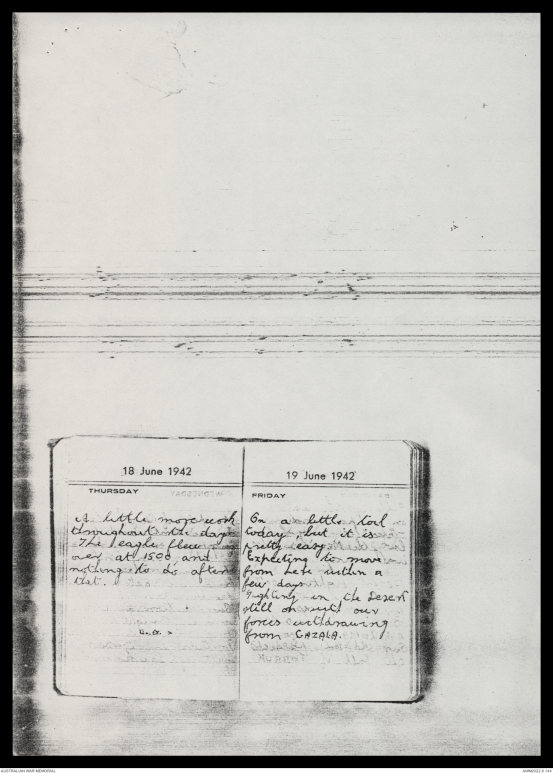 18 June 1942
THURSDAY
A little more work
throughout the day.
The eagle flew
over at 1500 and
nothing to do after
that.
19 June 1942
FRIDAY
On a little toil
today, but it is
pretty easy.
Expecting to move
from here within a
few days.
Fighting in the Desert
still on with our
forces withdrawing
from GAZALA.
AUSTRALIAN WAR MEMORIAL